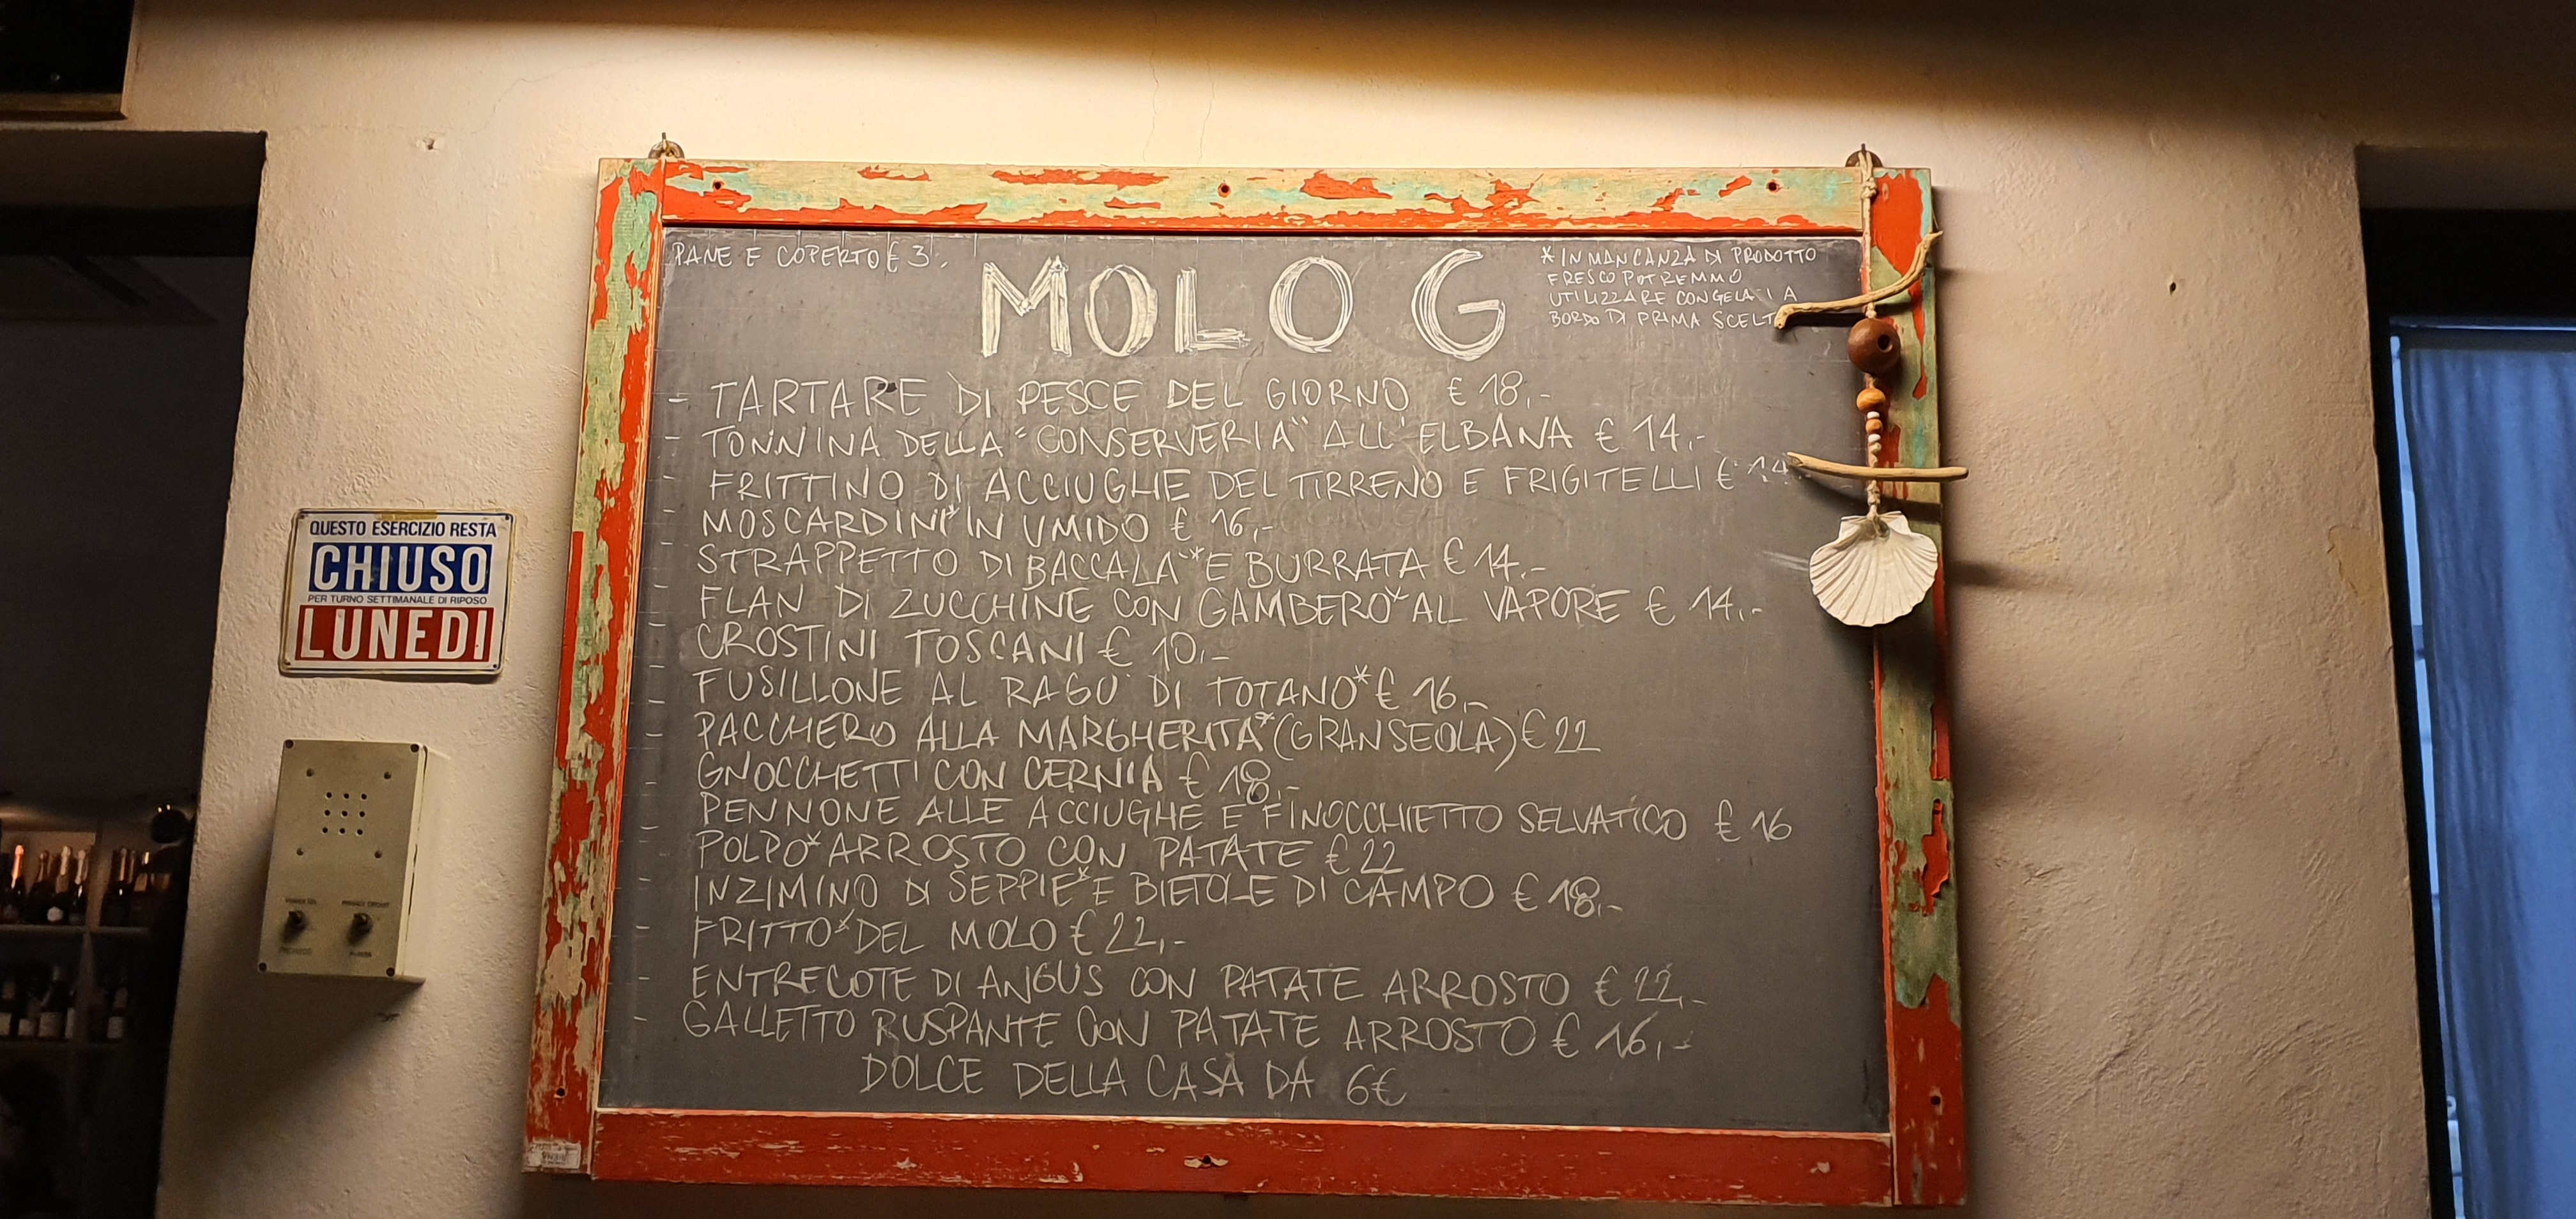 PANE E COPERTO € 3.
MOLO G
*IN MANCANZA DI PRODOTTO
FRESCO POTREMMO
UTILIZZARE CONGELATI A
BORDO DI PRIMA SCELT
- TARTARE DI PESCE DEL GIORNO € 18,-
- TONNINA DELLA "CONSERVERIA" ALL'ELBANA € 14,-
- FRITTINO DI ACCIUGHE DEL TIRRENO E FRIGITELLI € 14
- MOSCARDINI* IN UMIDO € 16,-
- STRAPPETTO DI BACCALA'* E BURRATA € 14,-
- FLAN DI ZUCCHINE CON GAMBERO* AL VAPORE € 14,-
- CROSTINI TOSCANI € 10,-
- FUSILLONE AL RAGU' DI TOTANO* € 16,-
- PACCHERO ALLA MARGHERITA* (GRANSEOLA) € 22
- GNOCCHETTI CON CERNIA € 18,-
- PENNONE ALLE ACCIUGHE E FINOCCHIETTO SELVATICO € 16
- POLPO* ARROSTO CON PATATE € 22
- INZIMINO DI SEPPIE* E BIETOLE DI CAMPO € 18,-
- FRITTO* DEL MOLO € 22,-
- ENTRECOTE DI ANGUS CON PATATE ARROSTO € 22,-
- GALLETTO RUSPANTE CON PATATE ARROSTO € 16,-
DOLCE DELLA CASA DA 6€
QUESTO ESERCIZIO RESTA
CHIUSO
PER TURNO SETTIMANALE DI RIPOSO
LUNEDI